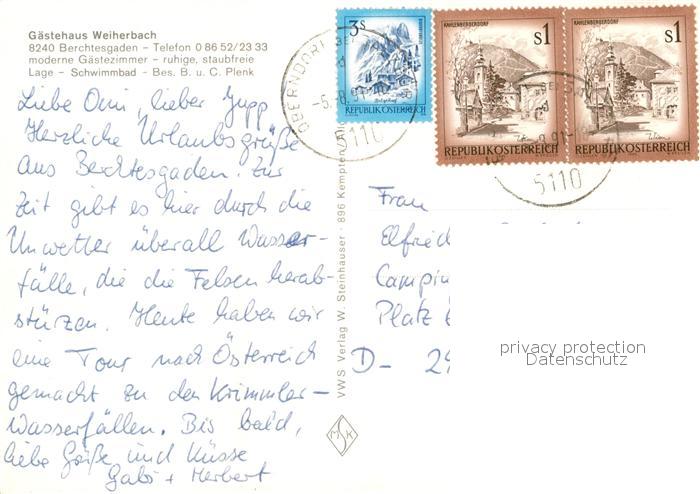 Gästehaus Weiherbach
8240 Berchtesgaden – Telefon 0 86 52/23 33
moderne Gästezimmer – ruhige, staubfreie
Lage – Schwimmbad – Bes. B. u. C. Plenk
Liebe Omi, lieber Jupp
Herzliche Urlaubsgrüße
aus Berchtesgaden. Zur
Zeit gibt es hier durch die
Unwetter überall Wasser-
fälle, die die Felsen herab-
stürzen. Heute haben wir
eine Tour nach Österreich
gemacht zu den Krimmler-
Wasserfällen. Bis bald,
liebe Grüße und Küsse
Gabi + Herbert
VWS Verlag W. Steinhauser · 896 Kempten/
MSK
3s
REPUBLIK ÖSTERREICH
KAHLENBERGERDORF
s1
REPUBLIK ÖSTERREICH
KAHLENBERGERDORF
s1
REPUBLIK ÖSTERREICH
OBERNDORF
5110
5110
Frau
Elfried
Campin
Platz
D- 2
privacy protection
Datenschutz